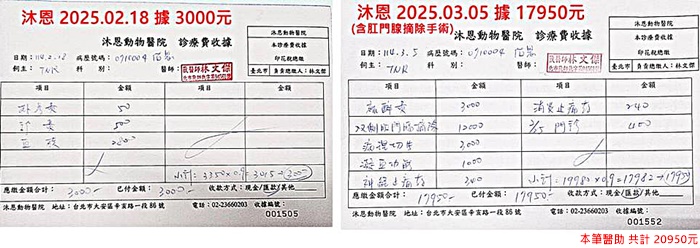 沐恩 2025.02.18 據 3000元
沐恩動物醫院 診療費收據
沐恩動物醫院
本診療費收據
印花稅總繳
臺北市 負責總繳人:林文傑
日期:114.2.18 病歷號碼:0710004
飼主:TNR 醫師: 獸醫師 林文傑
項目 金額 項目 金額
掛號費 50
診費 500
小計:3350×0.9=3015→3000
應繳金額合計:3000- 已付金額:3000- 收款方式:現金/匯款/其他
沐恩動物醫院 地址:台北市大安區辛亥路一段86號 電話:02-23660203 收據編號:
001505
沐恩 2025.03.05 據 17950元
(含肛門腺摘除手術)
沐恩動物醫院 診療費收據
沐恩動物醫院
本診療費收據
印花稅總繳
臺北市 負責總繳人:林文傑
日期:114.3.5 病歷號碼:0910004
飼主:TNR 醫師: 獸醫師 林文傑
項目 金額 項目 金額
麻醉費 3000 消炎止痛藥 240
雙側肛門腺摘除 12000 3/5 門診 400
病理切片 3000
凝血功能 1000
神經止痛藥 300 小計:
應繳金額合計:17950- 已付金額:17950- 收款方式:現金/匯款/其他
沐恩動物醫院 地址:台北市大安區辛亥路一段86號 電話:02-23660203 收據編號:
001552
本筆醫助 共計 20950元